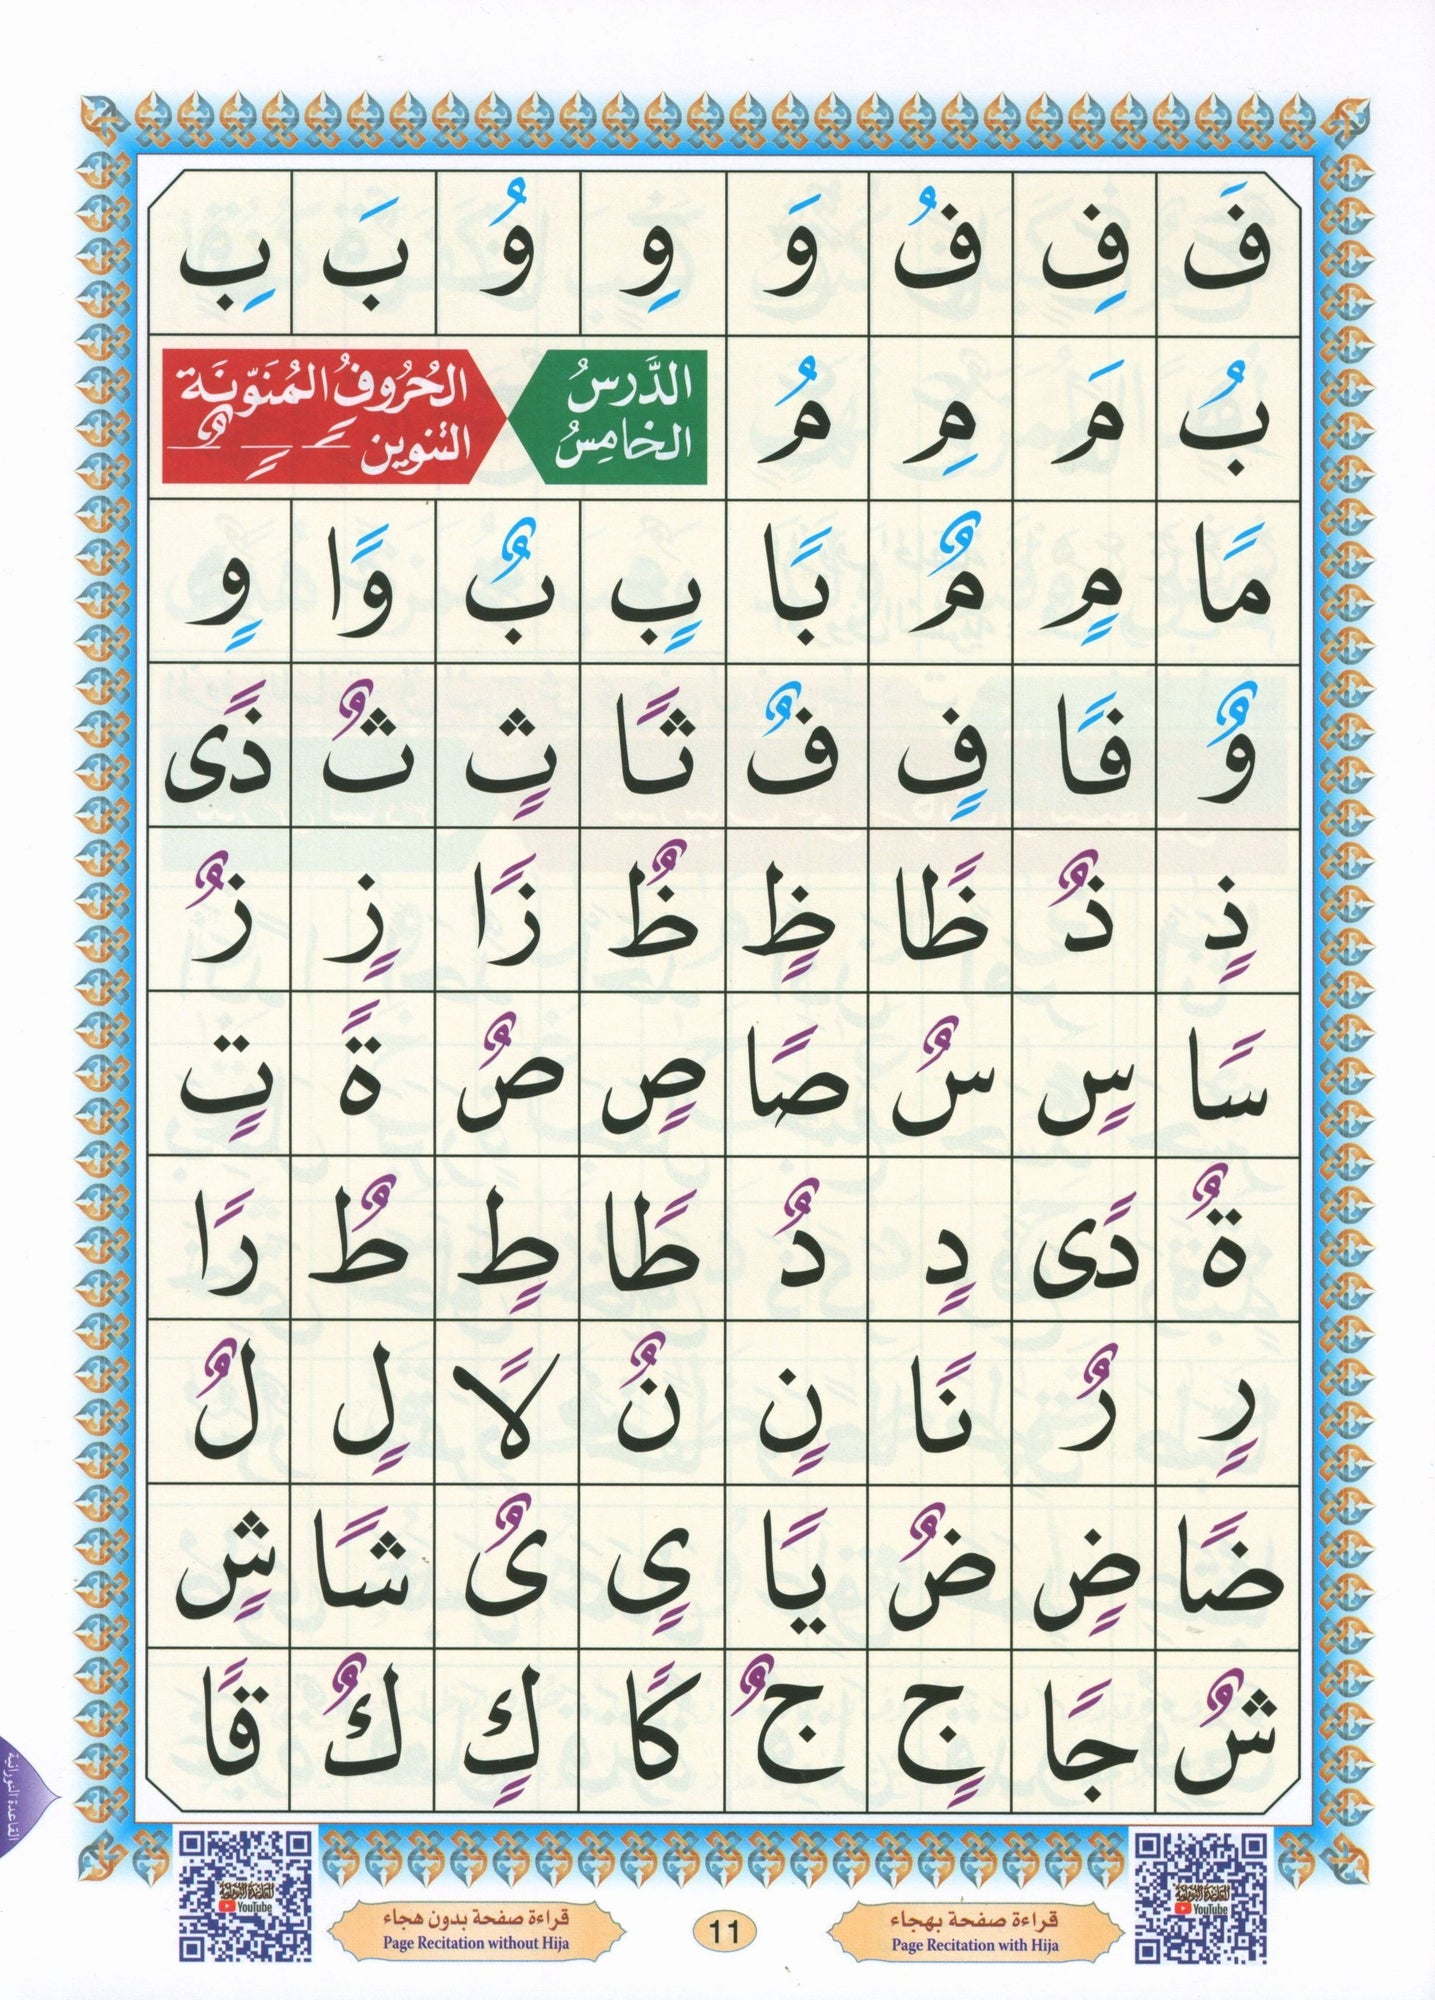 فَ فِ فُ وَ وِ وُ بَ بِ
بُ مَ مِ مُ
الدَّرسُ الخامِسُ
الحُرُوفُ المُنَوَّنَة
التنوين ـً ـٍ ـٌ
مًا مٍ مٌ بًا بٍ بٌ وًا وٍ
وٌ فًا فٍ فٌ ثًا ثٍ ثٌ ذًى
ذٍ ذٌ ظًا ظٍ ظٌ زًا زٍ زٌ
سًا سٍ سٌ صًا صٍ صٌ ةً تٍ
ةٌ دًى دٍ دٌ طًا طٍ طٌ رًا
رٍ رٌ نًا نٍ نٌ لًا لٍ لٌ
ضًا ضٍ ضٌ يًا ىٍ ىٌ شًا شٍ
شٌ جًا جٍ جٌ كًا كٍ كٌ قًا
القاعدة النورانية
القاعدة النورانية
YouTube
قراءة صفحة بهجاء
Page Recitation with Hija
11
قراءة صفحة بدون هجاء
Page Recitation without Hija
القاعدة النورانية
YouTube